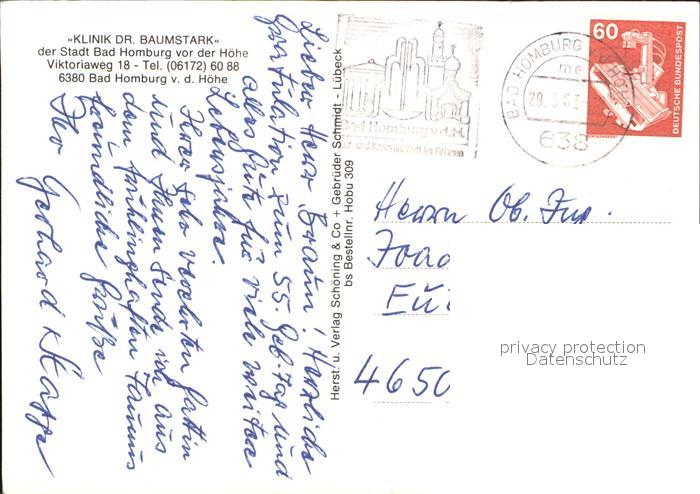 »KLINIK DR. BAUMSTARK«
der Stadt Bad Homburg vor der Höhe
Viktoriaweg 18 - Tel. (06172) 60 88
6380 Bad Homburg v. d. Höhe
Lieber Herr Braun! Herzliche
Gratulation zum 55. Geb.tag und
alles Gute für viele weitere
Lebensjahre.
Ihrer sehr verehrten Gattin
und Ihnen sende ich aus
dem frühlinghaften Taunus
freundliche Grüße
Ihr Gerhard
Herst. u. Verlag Schöning & Co + Gebrüder Schmidt - Lübeck
bs Bestellnr. Hobu 309
Bad Homburg v.d.H.
BAD HOMBURG
29.3.83
638
60
DEUTSCHE BUNDESPOST
Herrn Ob. Ing.
Joac
4650
privacy protection
Datenschutz